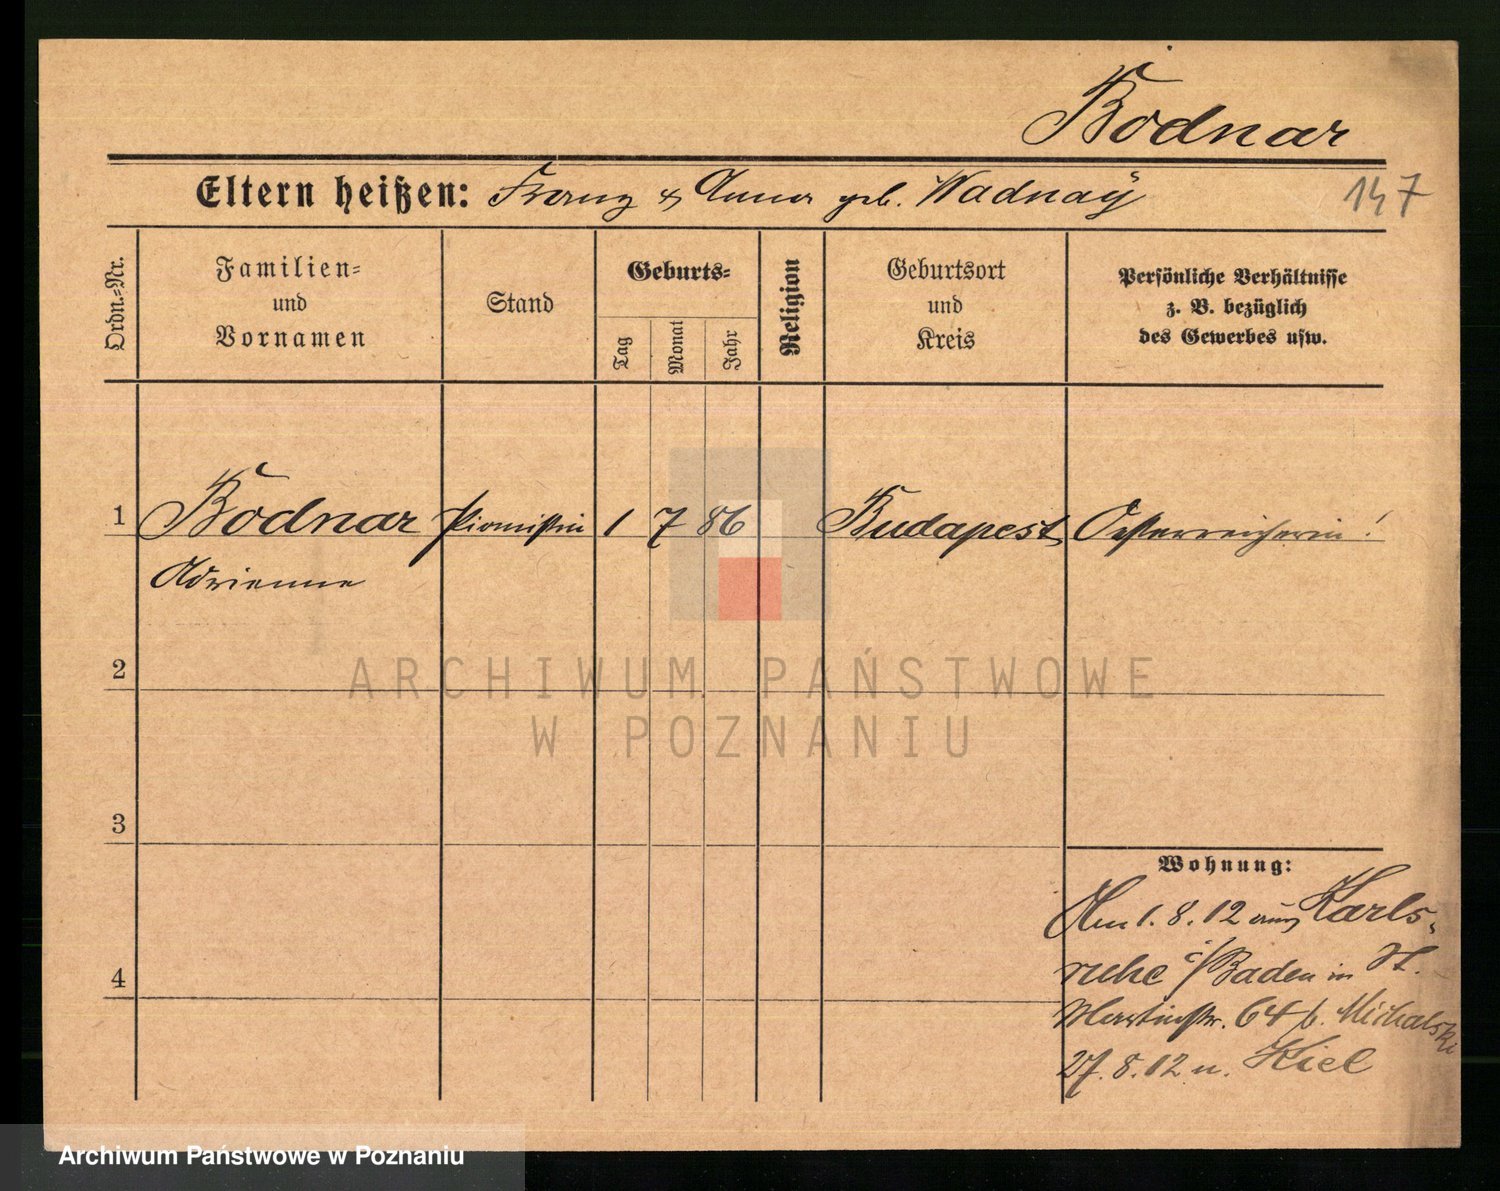 Bodnar
Eltern heißen: Franz & Anna geb. Wadnaÿ
147
Ordn.-Nr.
Familien- und Vornamen
Stand
Geburts-
Tag
Monat
Jahr
Religion
Geburtsort und Kreis
Persönliche Verhältnisse
z. B. bezüglich
des Gewerbes usw.
1 Bodnar Pianistin 1 7 86 Budapest Oesterreicherin!
Adrienne
2
3
4
Wohnung:
Am 1. 8. 12 aus Karls-
ruhe i/Baden in St.
Martinstr. 64 b. Michalski
27. 8. 12 n. Kiel
ARCHIWUM PAŃSTWOWE
W POZNANIU
Archiwum Państwowe w Poznaniu